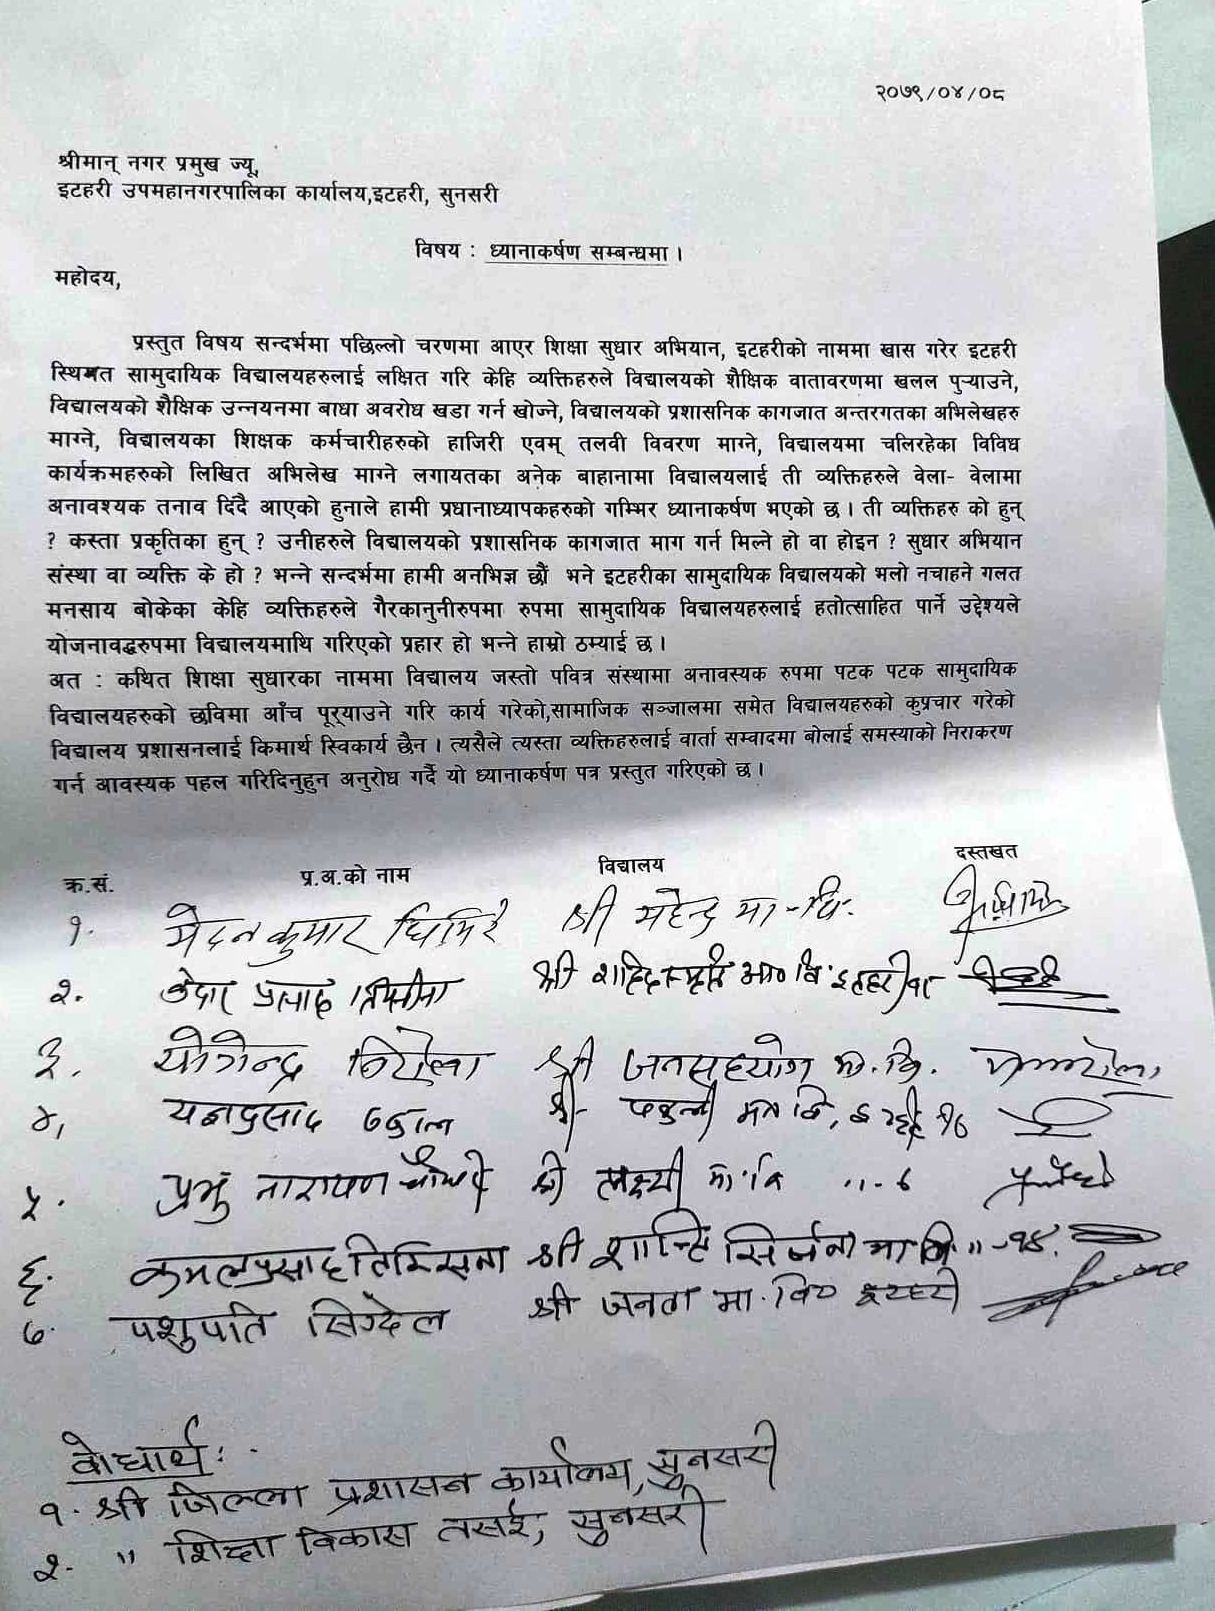 २०७९/०४/०८
श्रीमान् नगर प्रमुख ज्यू,
इटहरी उपमहानगरपालिका कार्यालय,इटहरी, सुनसरी
विषय : ध्यानाकर्षण सम्बन्धमा ।
महोदय,
प्रस्तुत विषय सन्दर्भमा पछिल्लो चरणमा आएर शिक्षा सुधार अभियान, इटहरीको नाममा खास गरेर इटहरी
स्थिमत सामुदायिक विद्यालयहरुलाई लक्षित गरि केहि व्यक्तिहरुले विद्यालयको शैक्षिक वातावरणमा खलल पुऱ्याउने,
विद्यालयको शैक्षिक उन्नयनमा बाधा अवरोध खडा गर्न खोज्ने, विद्यालयको प्रशासनिक कागजात अन्तरगतका अभिलेखहरु
माग्ने, विद्यालयका शिक्षक कर्मचारीहरुको हाजिरी एवम् तलवी विवरण माग्ने, विद्यालयमा चलिरहेका विविध
कार्यक्रमहरुको लिखित अभिलेख माग्ने लगायतका अनेक बाहानामा विद्यालयलाई ती व्यक्तिहरुले वेला- वेलामा
अनावश्यक तनाव दिंदै आएको हुनाले हामी प्रधानाध्यापकहरुको गम्भिर ध्यानाकर्षण भएको छ । ती व्यक्तिहरु को हुन्
? कस्ता प्रकृतिका हुन् ? उनीहरुले विद्यालयको प्रशासनिक कागजात माग गर्न मिल्ने हो वा होइन ? सुधार अभियान
संस्था वा व्यक्ति के हो ? भन्ने सन्दर्भमा हामी अनभिज्ञ छौं भने इटहरीका सामुदायिक विद्यालयको भलो नचाहने गलत
मनसाय बोकेका केहि व्यक्तिहरुले गैरकानुनीरुपमा रुपमा सामुदायिक विद्यालयहरुलाई हतोत्साहित पार्ने उद्देश्यले
योजनावद्धरुपमा विद्यालयमाथि गरिएको प्रहार हो भन्ने हाम्रो ठम्याई छ ।
अत : कथित शिक्षा सुधारका नाममा विद्यालय जस्तो पवित्र संस्थामा अनावस्यक रुपमा पटक पटक सामुदायिक
विद्यालयहरुको छविमा आँच पूर्‍याउने गरि कार्य गरेको,सामाजिक सञ्जालमा समेत विद्यालयहरुको कुप्रचार गरेको
विद्यालय प्रशासनलाई किमार्थ स्विकार्य छैन । त्यसैले त्यस्ता व्यक्तिहरुलाई वार्ता सम्वादमा बोलाई समस्याको निराकरण
गर्न आवस्यक पहल गरिदिनुहुन अनुरोध गर्दै यो ध्यानाकर्षण पत्र प्रस्तुत गरिएको छ ।
क्र.सं. प्र.अ.को नाम विद्यालय दस्तखत
१. मेदनकुमार घिमिरे श्री महेन्द्र मा-वि.
२. केदार प्रसाद श्री शहिद स्मृति आ० वि
३. योगेन्द्र निरौला श्री जनसहयोग मा.वि.
४. यज्ञप्रसाद श्री मा वि,
५. प्रभु नारायण चौधरी श्री लक्ष्मी मा.वि ,,-६
६. कमलप्रसाद तिम्सिना श्री शान्ति सिर्जना मा वि. "-१४.
७. पशुपति सिग्देल श्री जनता मा.वि० इटहरी
बोधार्थ :
१. श्री जिल्ला प्रशासन कार्यालय, सुनसरी
२- " शिक्षा विकास तसई, सुनसरी